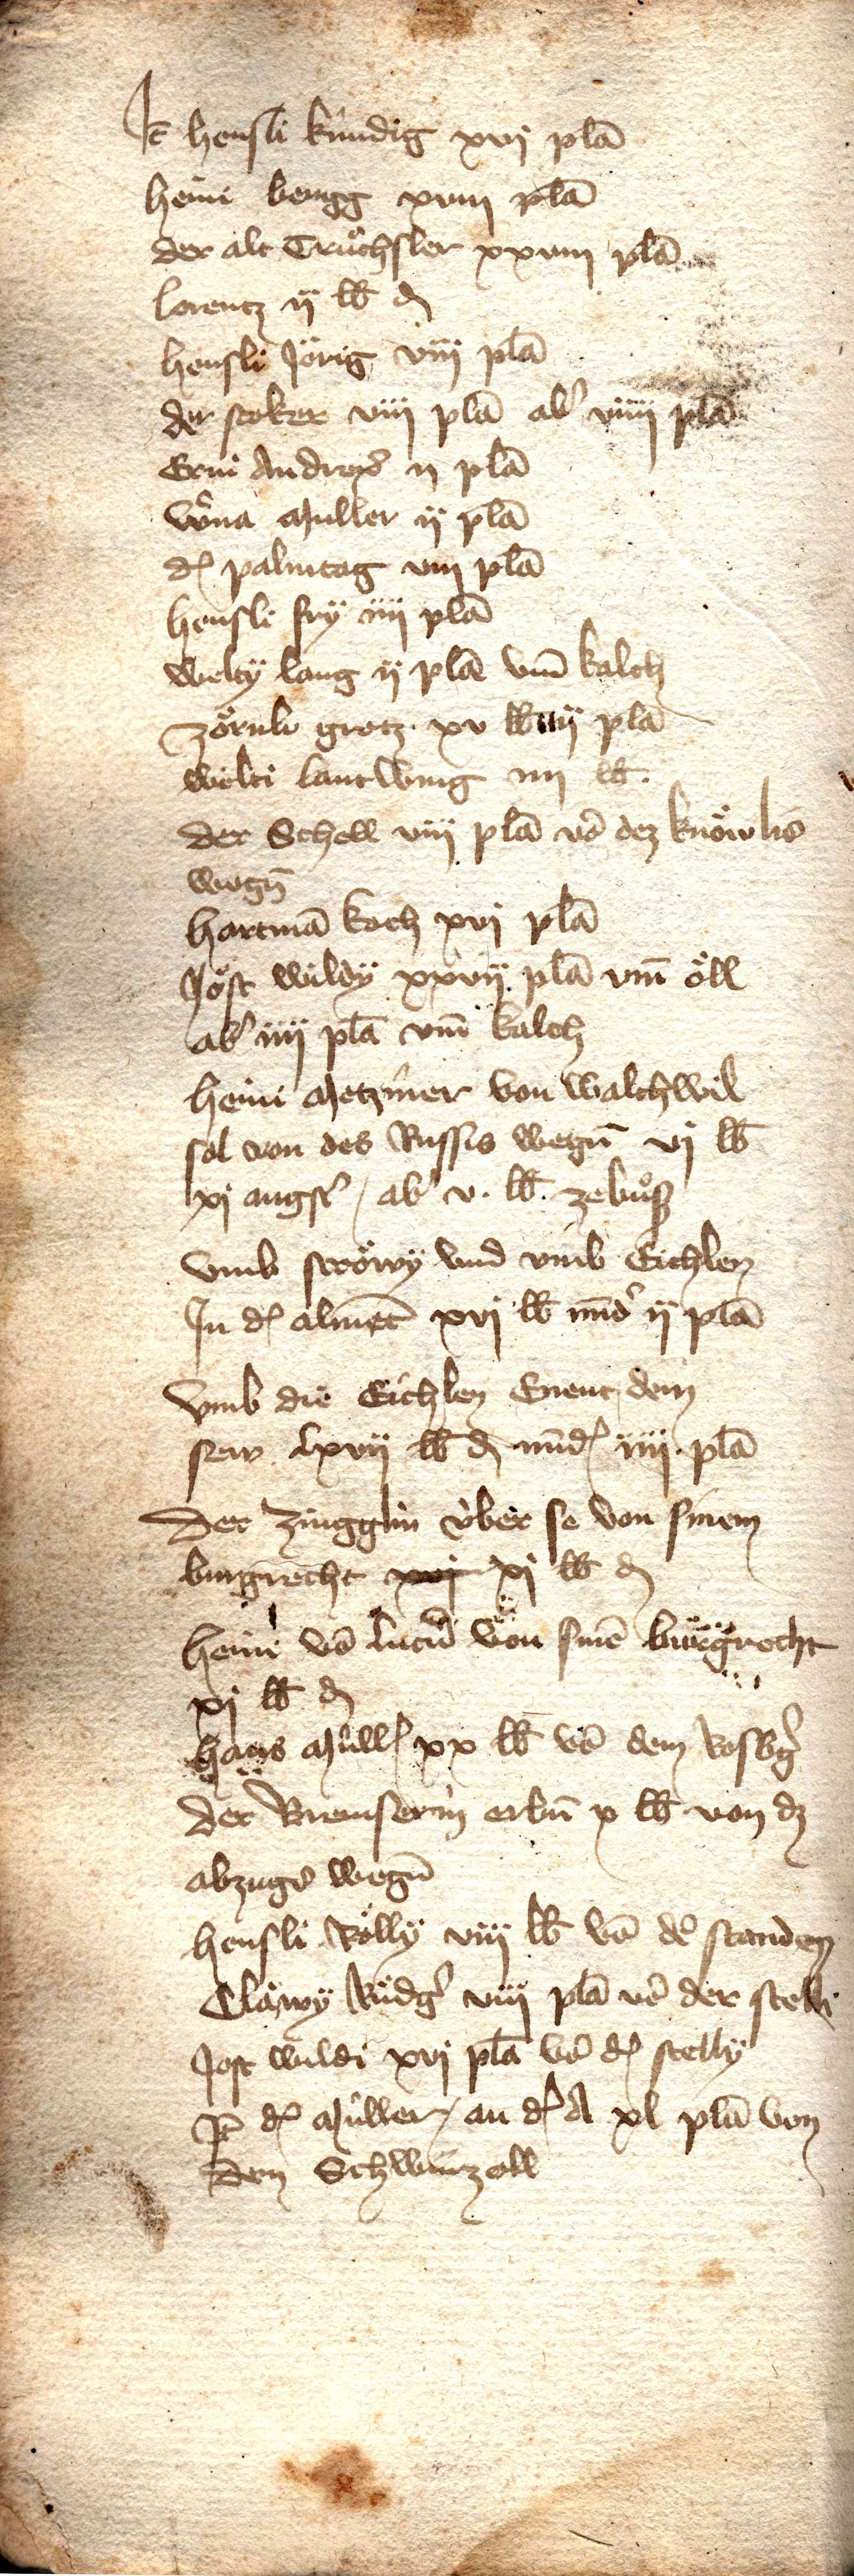 It hensli kündig xvj plā
heini bengg xviii plā
der alt Trüchsler xxviii plā
lorentz ij lb d
hensli Jörig viij plā
der stoker viij plā ab' viiij plā
Erni Andres ij plā
wöna Müller ij plā
d' palmtag viii plā
hensli fry iiij plā
welty lang ij plā vm̄ kalch
zörnli grotz xv lb iij plā
welti lantwing iiij lb
der Schell viij plā vō dez knöwlis
wegn̄
hartmā koch xvj plā
Jöst wildy xxvij plā vm̄ öll
ab' iiij plā vm̄ kalch
heini Metziner von walchwil
sol von des Russis wegn̄ vj lb
xj angst' / ab' v. lb. ze buͦsz
vmb ströwy vnd vmb Eichlen
In d' almēt xvj lb mīd' ij plā
vmb die Eichlen Enent dem
sew lxvij lb d mīd' iiij plā
Der Zinggin v̈ber se von sinem
burgrecht xvj xj lb d
heini vō von sinē burgrecht
xj lb d
hans Müll' xx lb vō dem Rosbg'
der Bremserin erbn̄ x lb von dz
abzugs wegn̄
hensli Rölly viij lb vō de standen
Cläwy Rüdg' viij plā vō der stelli
Jost wildi xvj plā vō d' stelly
It d' Müller / an d' A xl plā von
dem Schwinzoll